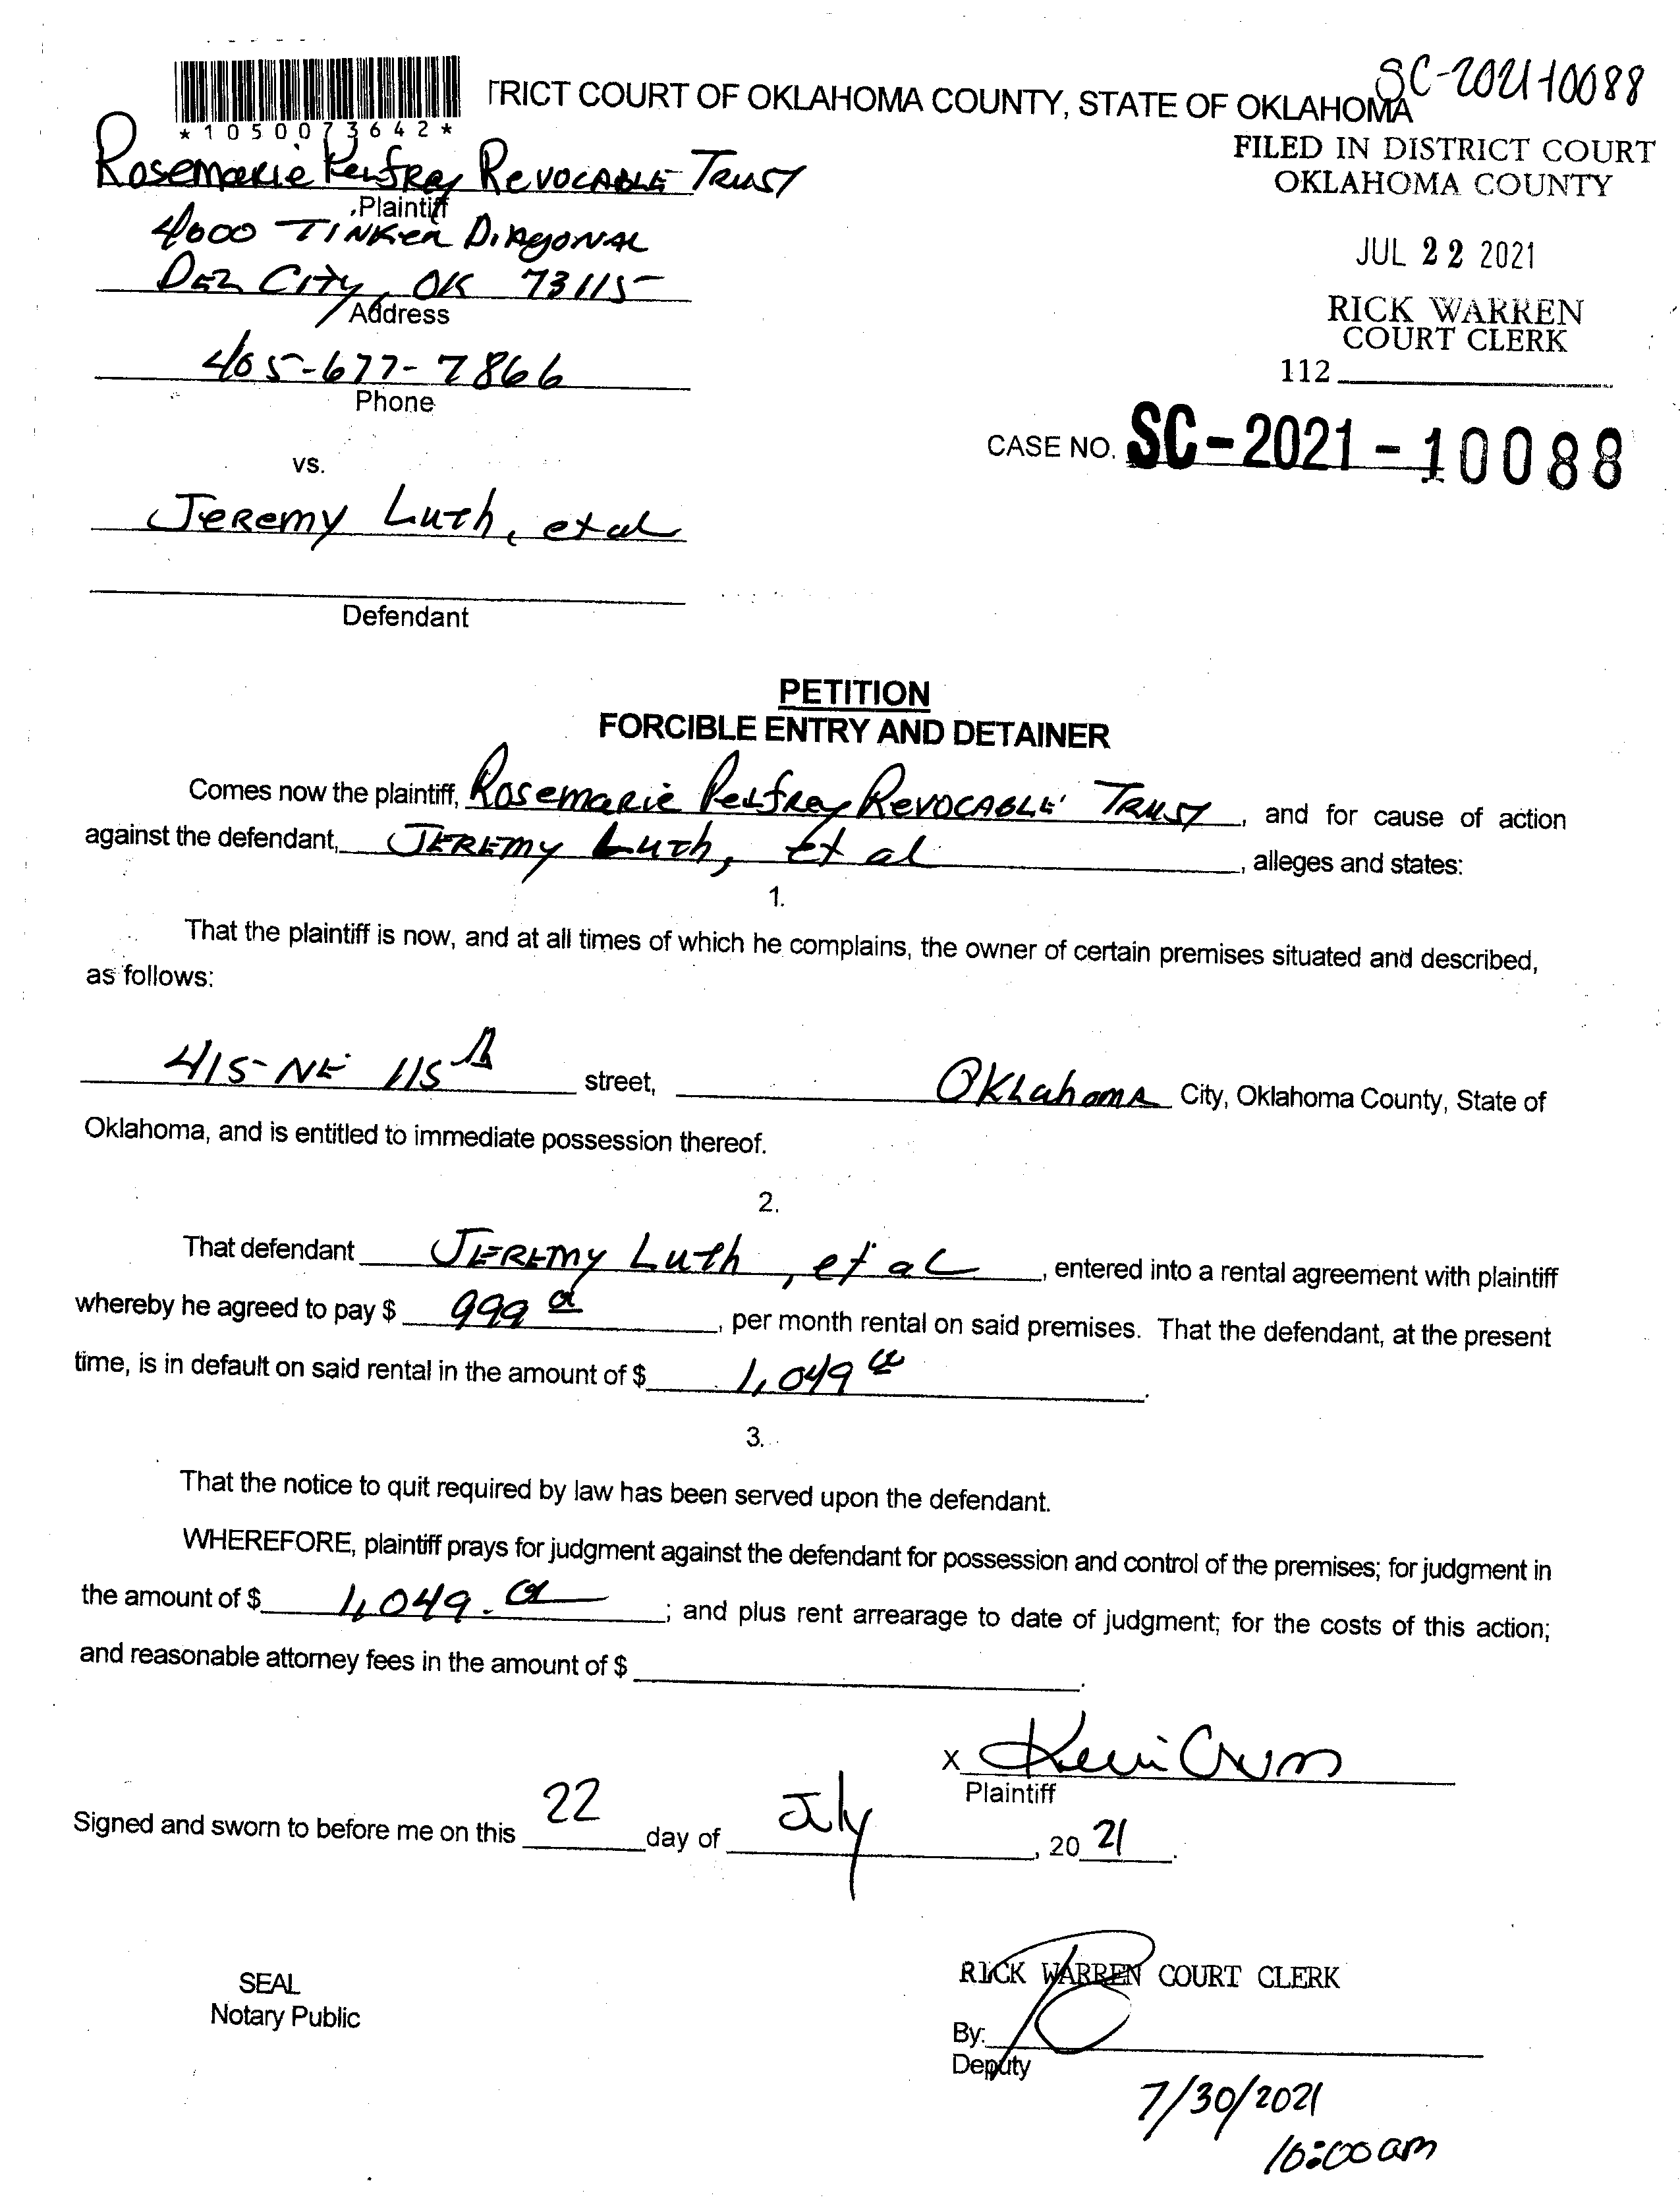 SC-2021-10088
TRICT COURT OF OKLAHOMA COUNTY, STATE OF OKLAHOMA
*1050073642*
FILED IN DISTRICT COURT
OKLAHOMA COUNTY
Rosemarie Pelfrey Revocable Trust
Plaintiff
4000 Tinker Diagonal
Del City, OK 73115
Address
JUL 22 2021
RICK WARREN
COURT CLERK
112
405-677-7866
Phone
CASE NO. SC-2021-10088
vs.
Jeremy Luth, et al
Defendant
PETITION
FORCIBLE ENTRY AND DETAINER
Comes now the plaintiff, Rosemarie Pelfrey Revocable Trust, and for cause of action
against the defendant, Jeremy Luth, et al, alleges and states:
1.
That the plaintiff is now, and at all times of which he complains, the owner of certain premises situated and described,
as follows:
415 NE 115th street, Oklahoma City, Oklahoma County, State of
Oklahoma, and is entitled to immediate possession thereof.
2.
That defendant Jeremy Luth, et al, entered into a rental agreement with plaintiff
whereby he agreed to pay $ 999, per month rental on said premises. That the defendant, at the present
time, is in default on said rental in the amount of $ 1,049.
3.
That the notice to quit required by law has been served upon the defendant.
WHEREFORE, plaintiff prays for judgment against the defendant for possession and control of the premises; for judgment in
the amount of $ 1,049.; and plus rent arrearage to date of judgment; for the costs of this action;
and reasonable attorney fees in the amount of $
X
Plaintiff
Signed and sworn to before me on this 22 day of July, 2021.
SEAL
Notary Public
RICK WARREN COURT CLERK
By:
Deputy
7/30/2021
10:00 am